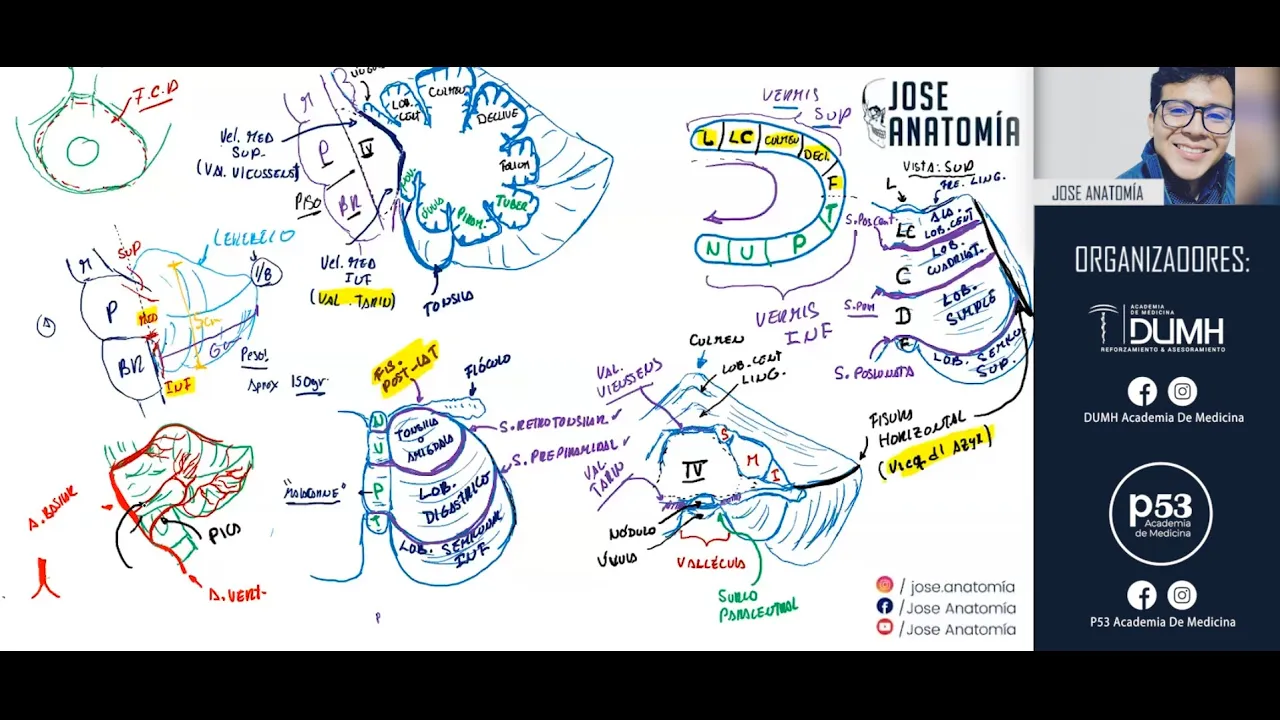 F.C.P
M
P
BR
IV
PISO
Vel. MED
SUP.
(VAL. VIEUSSENS)
Vel. MED
INF
(VAL. TARIN)
LOB.
CENT
CULMEN
DECLIVE
FOLIUM
TUBER
PIRAM.
ÚVULA
NOD.
TONSILA
CEREBELO
SUP
M
P
BR
MED
INF
5cm
6cm
PESO!
Aprox 150gr.
A. BASILAR
PICA
A. VERT.
FIS.
POST-LAT
FLÓCULO
N
U
P
T
TONSILA
O
AMIGDALA
S. RETROTONSILAR
S. PREPIRAMIDAL
LOB.
DIGASTRICO
LOB. SEMILUNAR
INF
P
VERMIS
SUP
L
LC
CULMEN
DECL.
F
T
P
U
N
VERMIS
INF
VISTA: SUP
L
FRE. LING.
S. POSCENT.
LC
ALA.
LOB. CENT
C
LOB.
CUADRILAT.
D
LOB.
SIMPLE
F
LOB. SEMILU
SUP.
S. POSLUNATA
CULMEN
LOB. CENT
LING.
VAL.
VIEUSSENS
VAL
TARIN
IV
S
M
I
NÓDULO
ÚVULA
VALLÉCULA
SURCO
PARACENTRAL
FISURA
HORIZONTAL
(Vicq. d'AZYR)
JOSE
ANATOMÍA
/ jose.anatomía
/Jose Anatomía
/Jose Anatomía
JOSE ANATOMÍA
ORGANIZADORES:
ACADEMIA
DE MEDICINA
DUMH
REFORZAMIENTO & ASESORAMIENTO
DUMH Academia De Medicina
p53
Academia
de Medicina
P53 Academia De Medicina